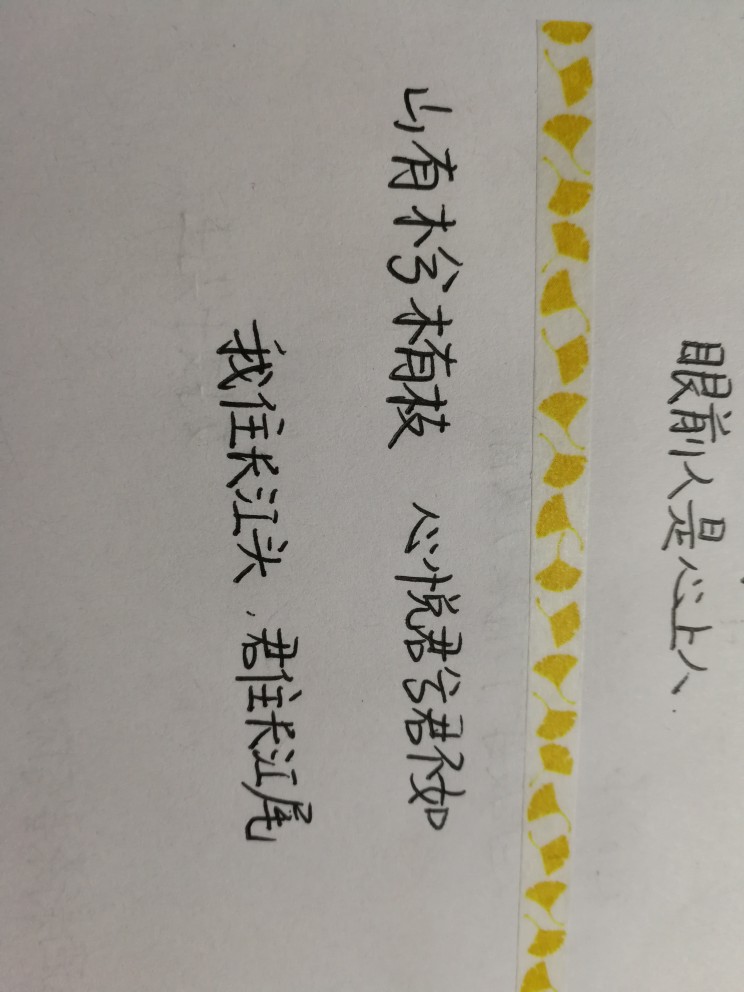 眼前人是心上人.
山有木兮木有枝 心悦君兮君不如
我住长江头,君住长江尾